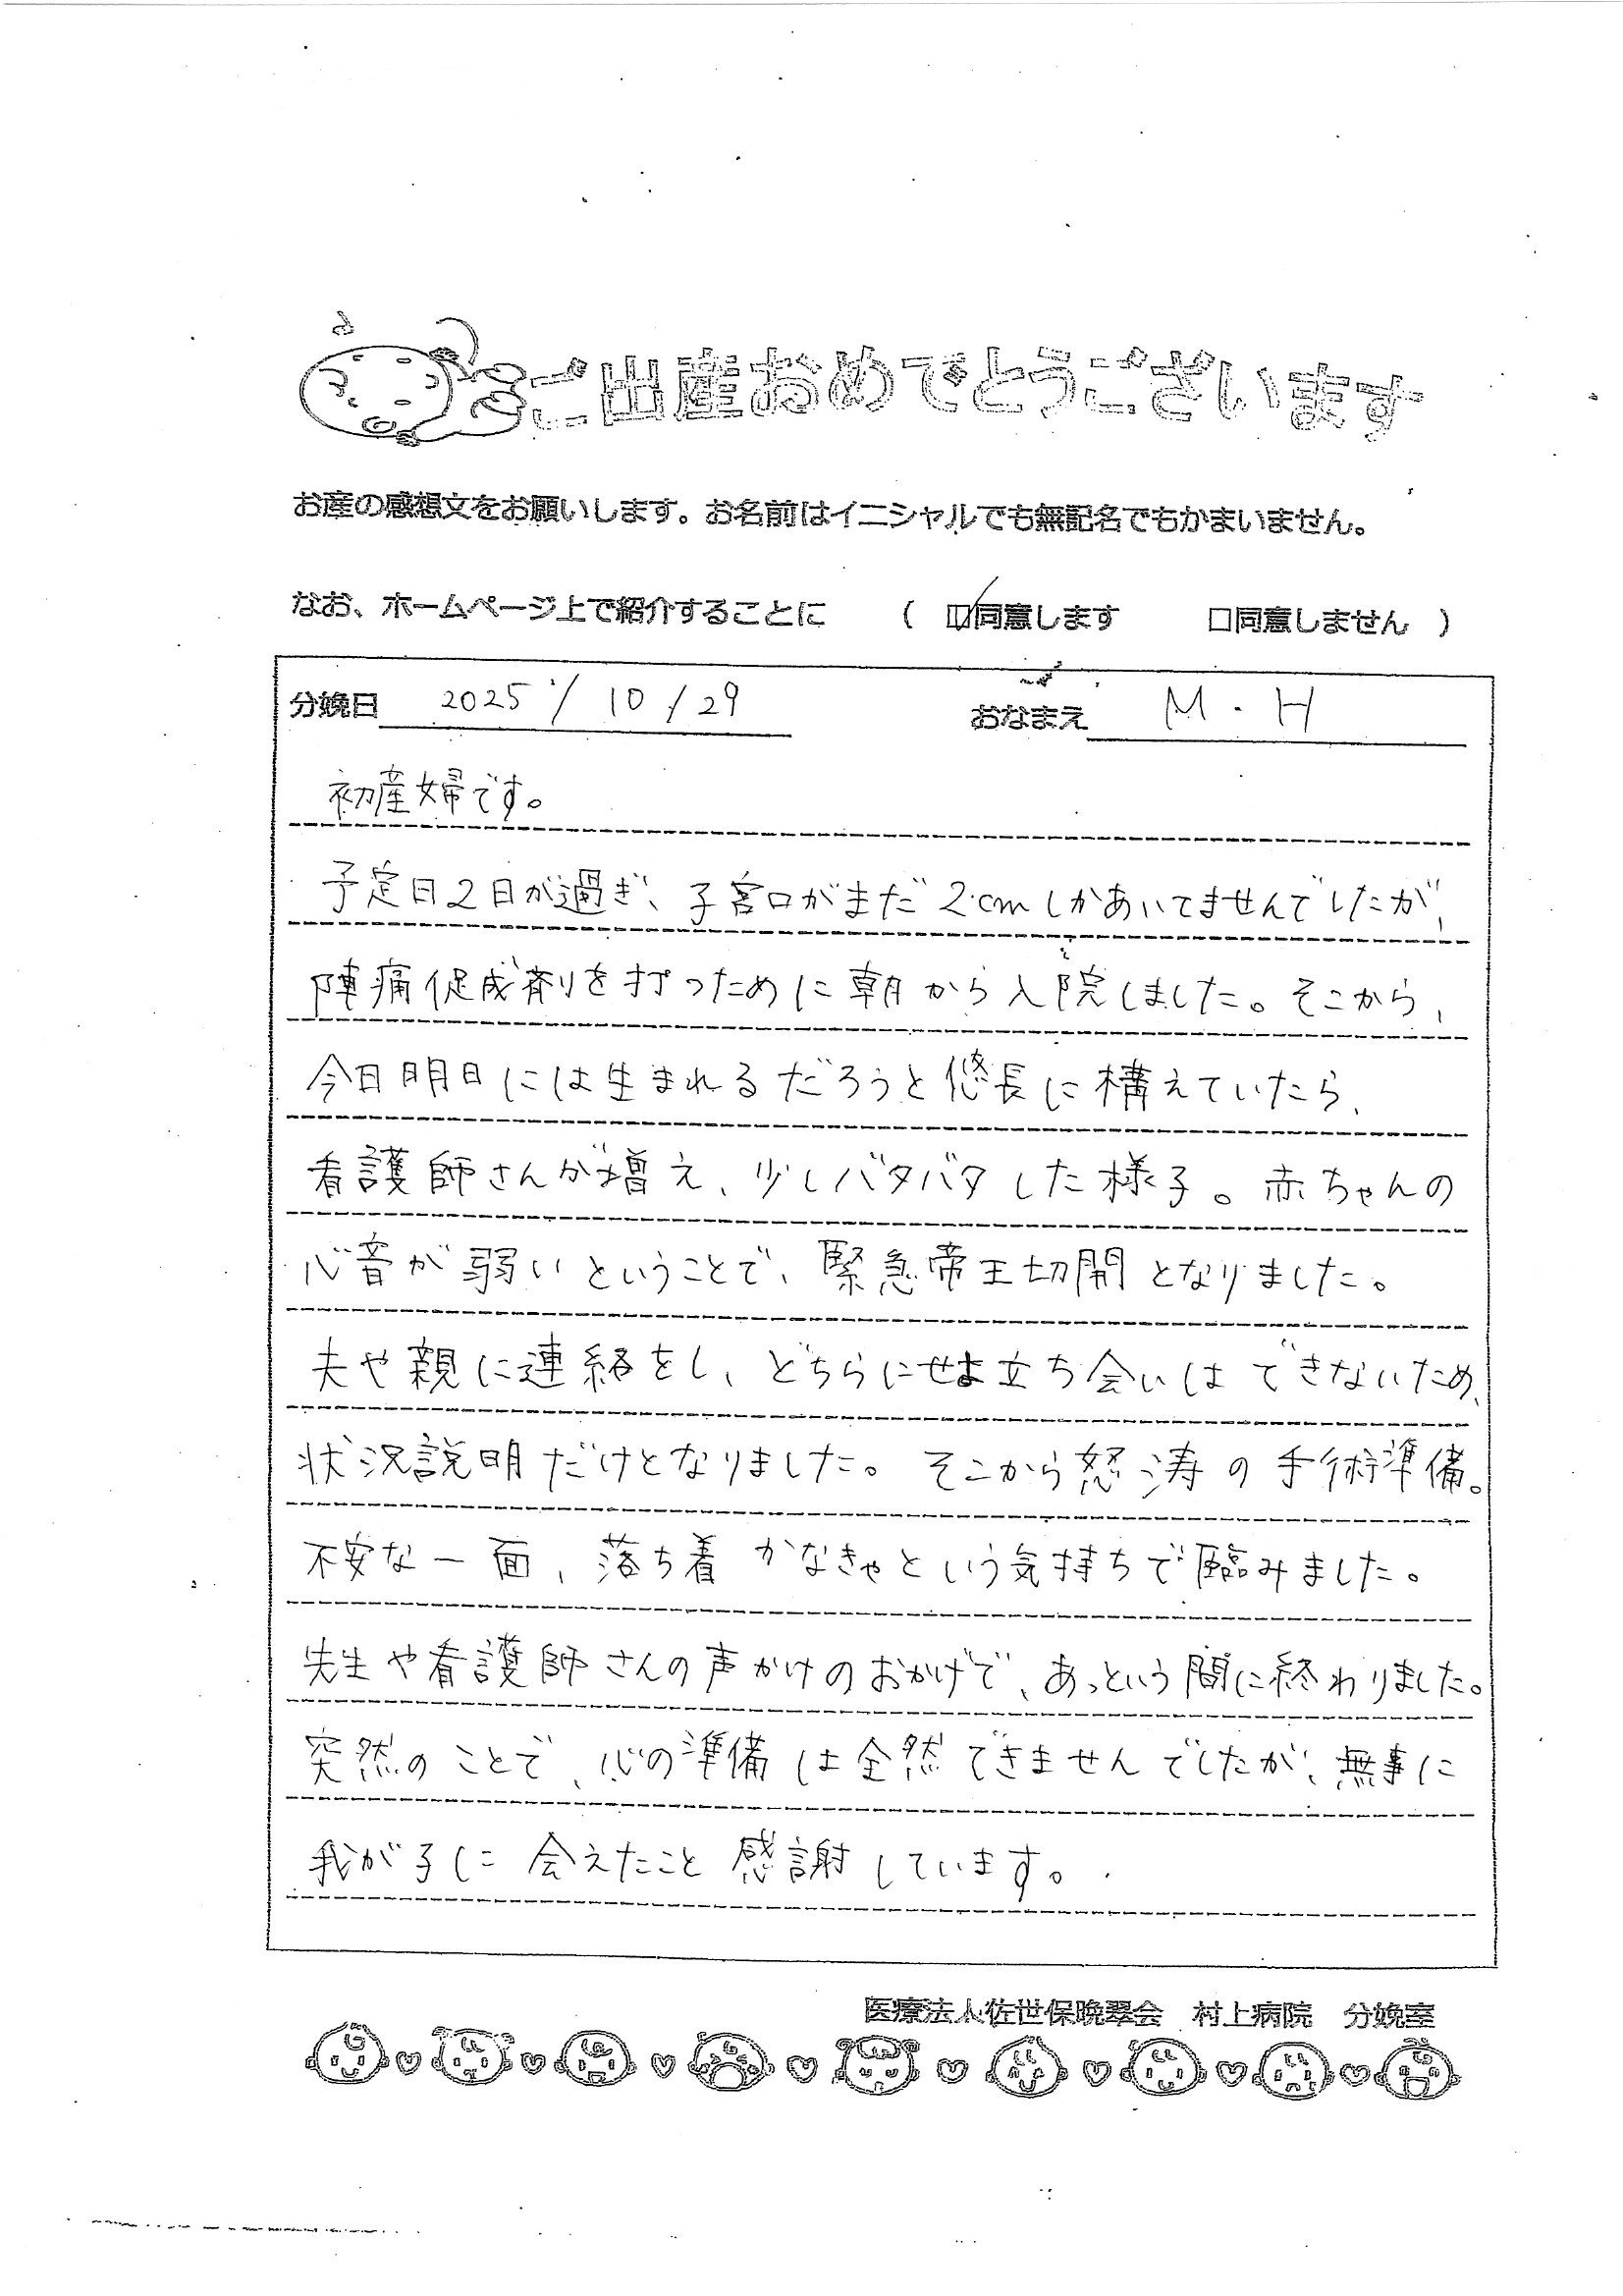 ご出産おめでとうございます
お産の感想文をお願いします。お名前はイニシャルでも無記名でもかまいません。
なお、ホームページ上で紹介することに ( ☑同意します □同意しません )
分娩日 2025/10/29 おなまえ M・H
初産婦です。
予定日2日が過ぎ、子宮口がまだ2cmしかあいてませんでしたが、
陣痛促成剤を打つために朝から入院しました。そこから、
今日明日には生まれるだろうと悠長に構えていたら、
看護師さんが増え、少しバタバタした様子。赤ちゃんの
心音が弱いということで、緊急帝王切開となりました。
夫や親に連絡をし、どちらにせよ立ち会いはできないため、
状況説明だけとなりました。そこから怒涛の手術準備。
不安な一面、落ち着かなきゃという気持ちで臨みました。
先生や看護師さんの声かけのおかげで、あっという間に終わりました。
突然のことで、心の準備は全然できませんでしたが、無事に
我が子に会えたこと感謝しています。
医療法人佐世保晩翠会 村上病院 分娩室